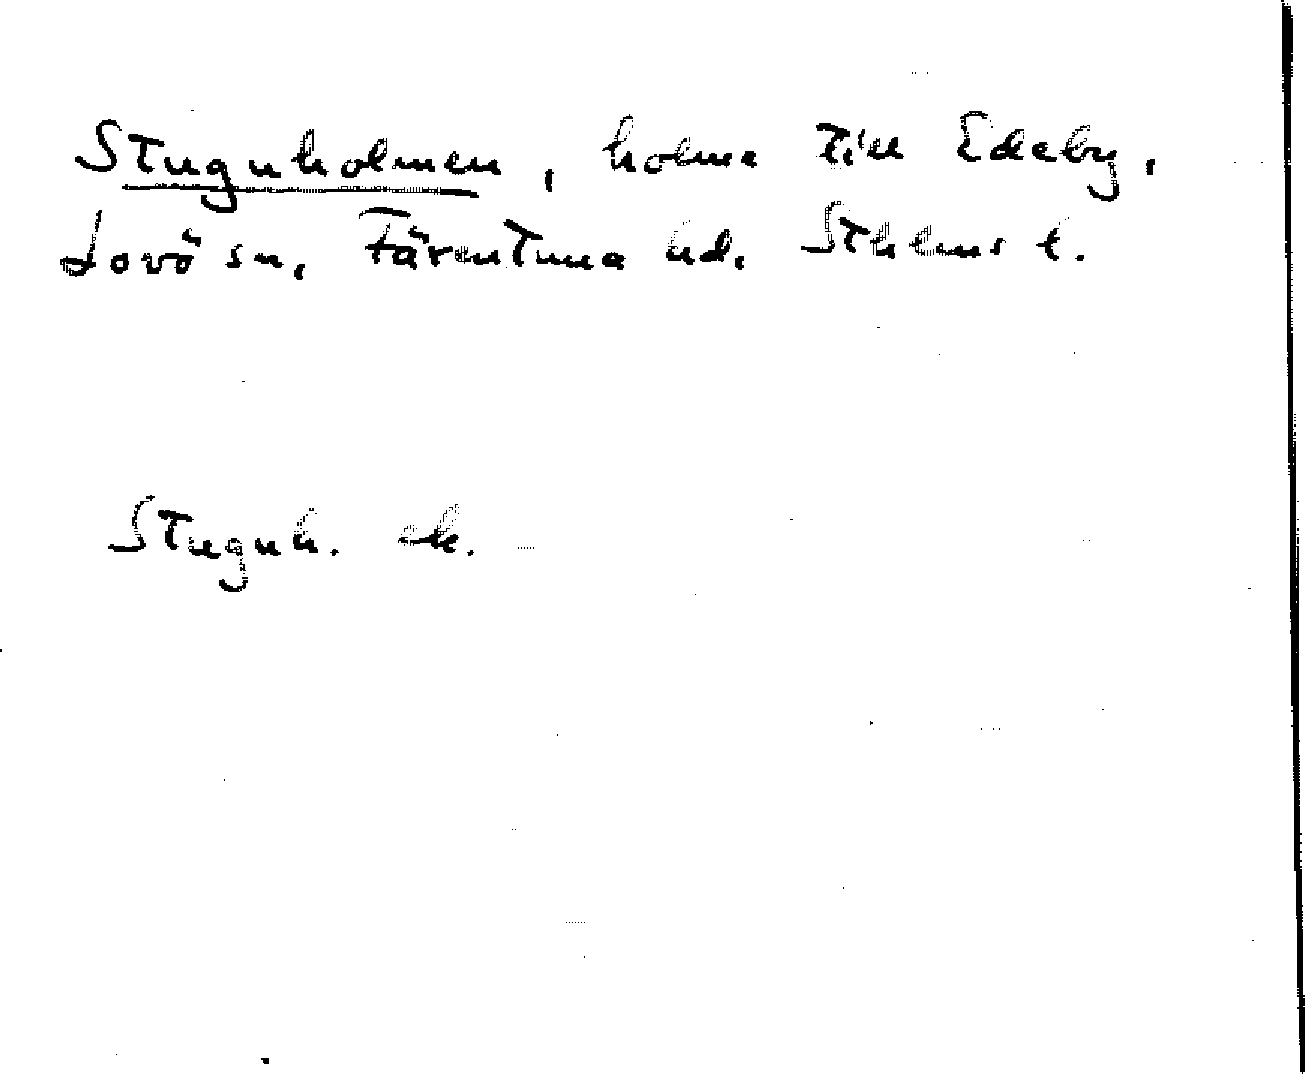 Stugnholmen, holme till Edeby,
Lovö sn, Färentuna hd. Sthlms l.
Stugnh. ek.